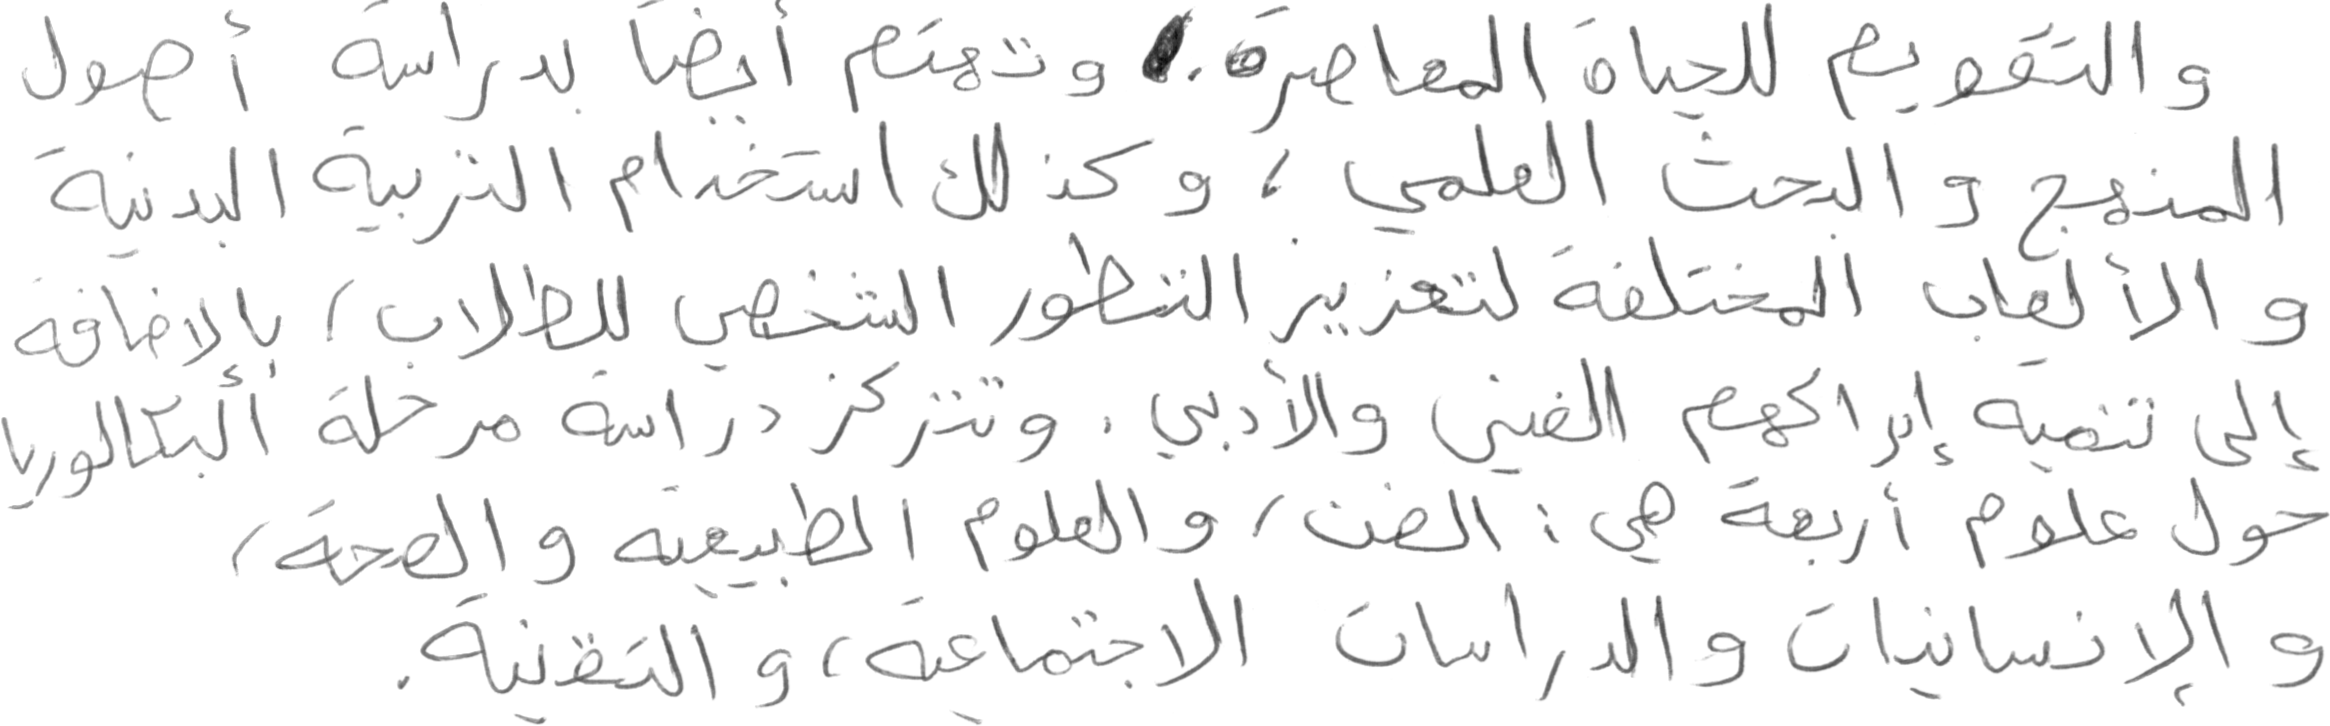 والتقويم للحياة المعاصرة. وتهتم أيضا بدراسة أصول
المنهج والبحث العلمي، وكذلك استخدام التربية البدنية
والألعاب المختلفة لتعزيز التطور الشخصي للطلاب، بالاضافة
إلى تنمية إدراكهم الفني والأدبي. وتتركز دراسة مرحلة البكالوريا
حول علوم أربعة هي: الفن، والعلوم الطبيعية والصحة،
والإنسانيات والدراسات الاجتماعية، والتقنية.